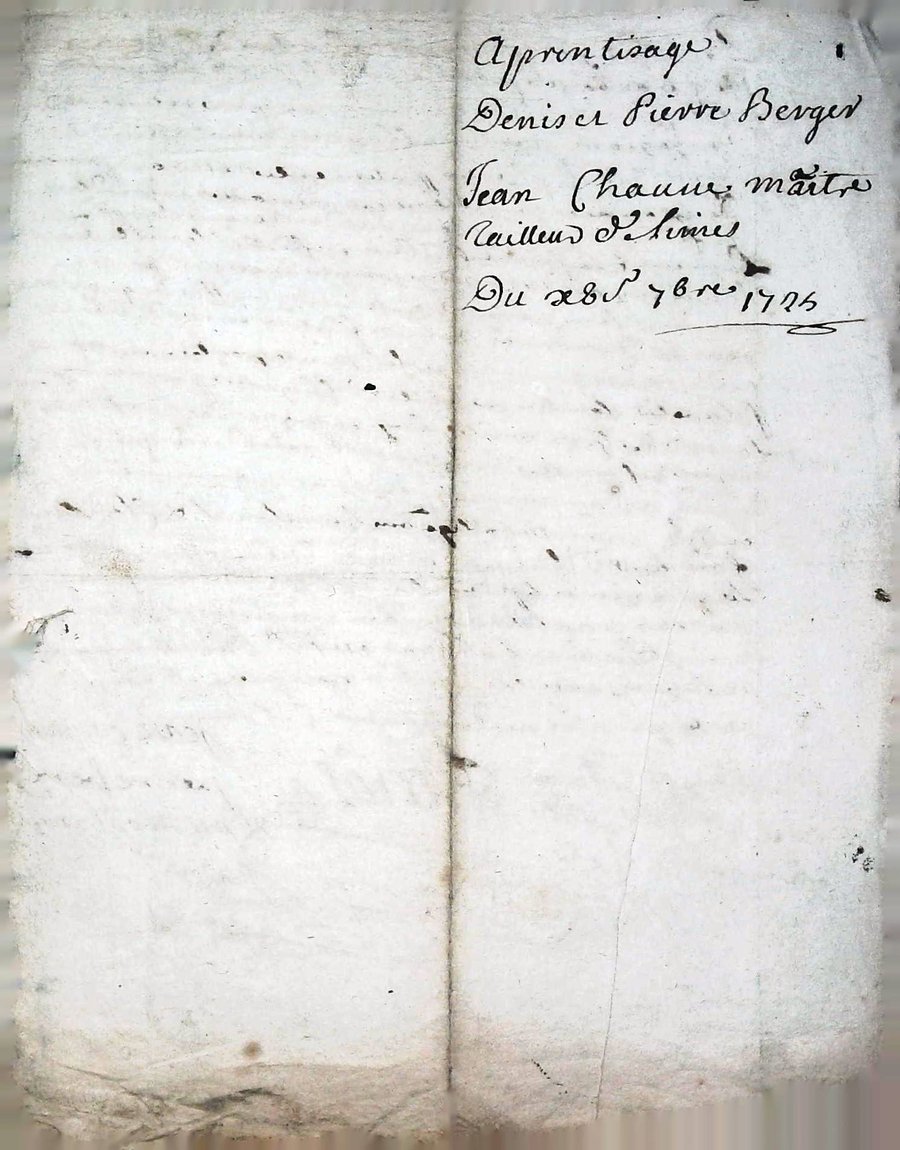 Aprentisage
Denis et Pierre Berger
Jean Chauue maître
Tailleur de limes
Du 7bre 1725